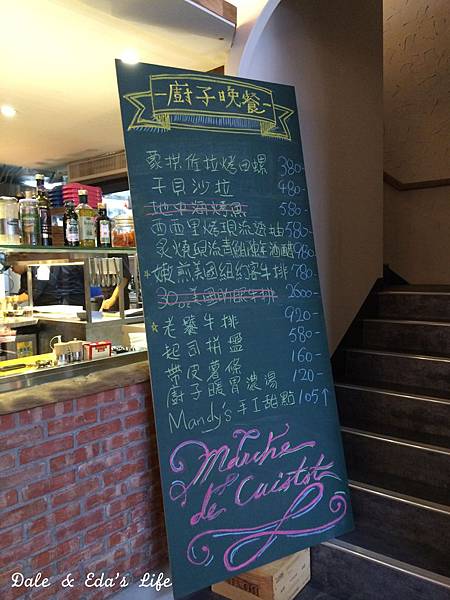 廚子晚餐
蒙拱佐拉烤田螺 380-
干貝沙拉 480-
地中海烤魚 580-
西西里燒現流透抽 580-
炙燒現流青甘 酒醋 980-
嫩煎美國紐約客牛排 780-
30 美國肋眼牛排 2600-
老饕牛排 920-
起司拼盤 580-
帶皮薯條 160-
廚子暖胃濃湯 120-
Mandy's 手工甜點 105↑
Marche
de Cuistot
Dale & Eda's Life